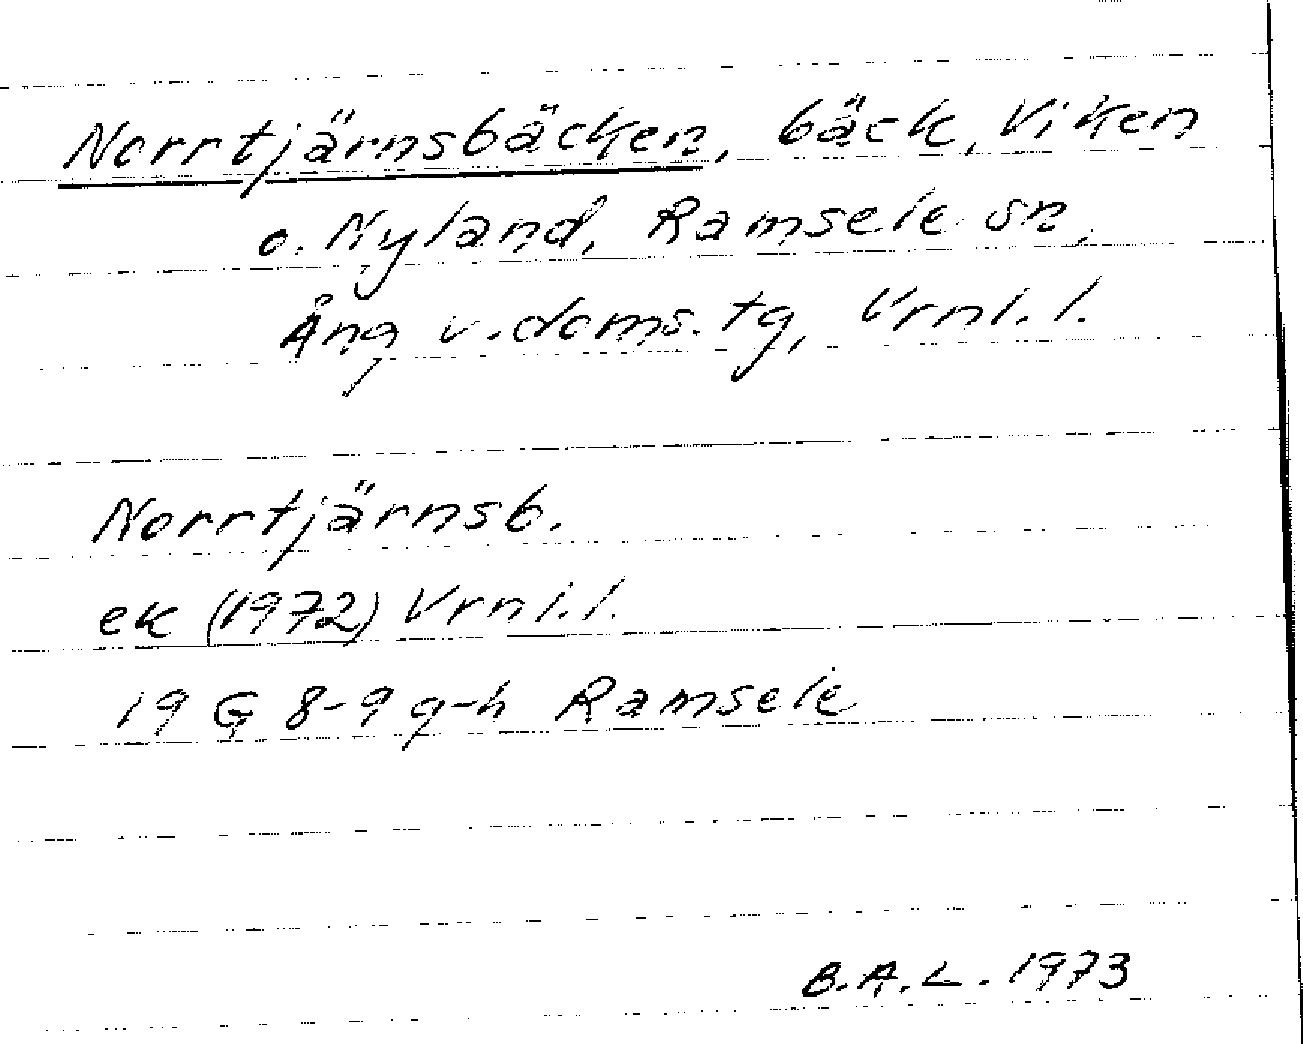 Norrtjärnsbäcken, bäck, Viken
o. Nyland, Ramsele sn,
Ång v. doms. tg, Vrnl. l.
Norrtjärnsb.
ek (1972) Vrnl. l.
19 G 8-9 g-h Ramsele
B.A.L. 1973